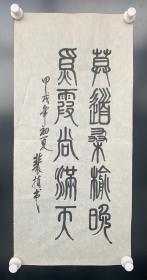 莫道桑榆晚
為霞尚滿天
甲戌年初夏